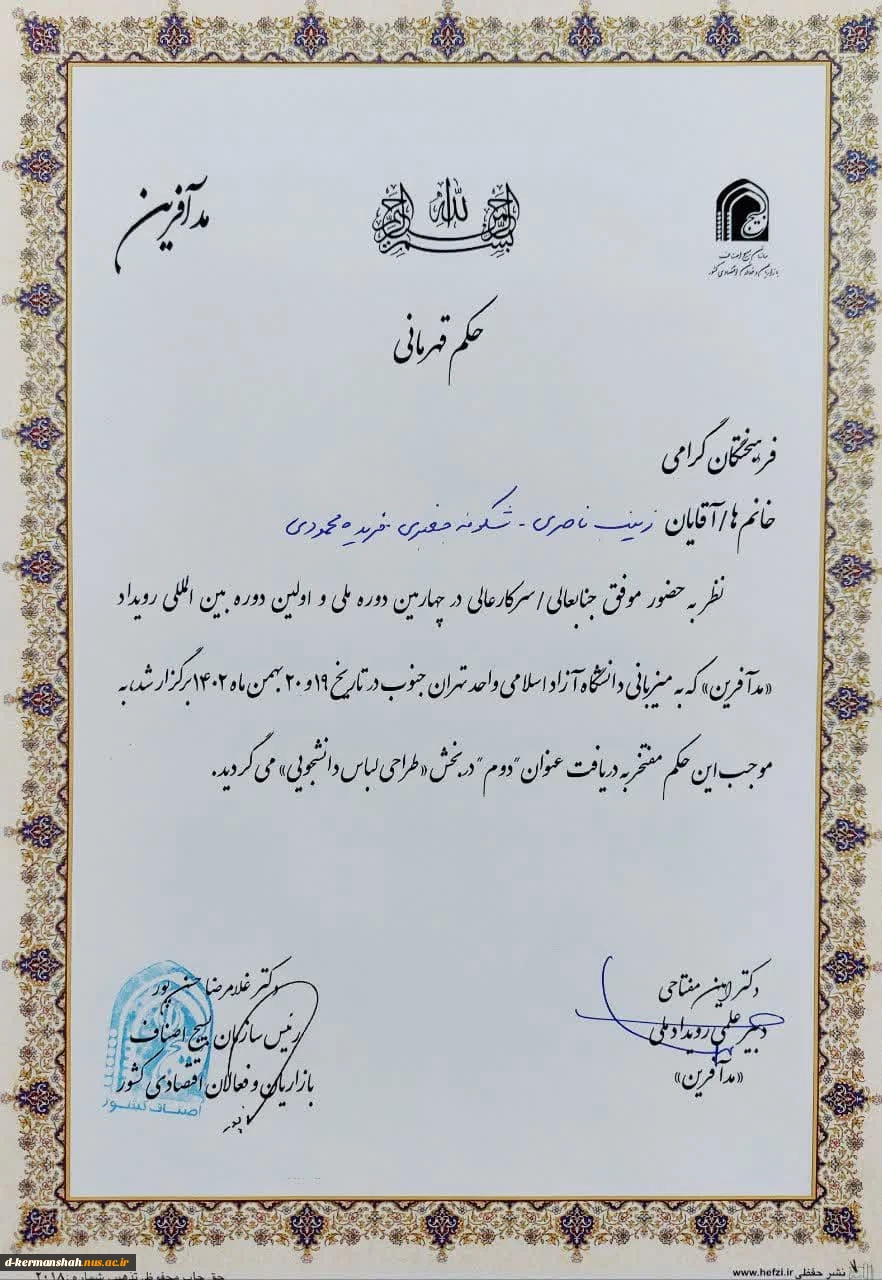 بسم الله الرحمن الرحیم
سازمان بسیج اصناف
بازاریان و فعالان اقتصادی کشور
مدآفرین
حکم قهرمانی
فرهیختگان گرامی
خانم ها/آقایان زینب ناصری - شکوفه جعفری - فریده محمودی
نظر به حضور موفق جنابعالی/سرکارعالی در چهارمین دوره ملی و اولین دوره بین المللی رویداد
«مدآفرین» که به میزبانی دانشگاه آزاد اسلامی واحد تهران جنوب در تاریخ ۱۹و ۲۰ بهمن ماه ۱۴۰۲ برگزار شد، به
موجب این حکم مفتخر به دریافت عنوان "دوم" در بخش «طراحی لباس دانشجویی» می گردید.
دکتر امین مفتاحی
دبیر علمی رویداد ملی
«مدآفرین»
دکتر غلامرضا حسن پور
رئیس سازمان بسیج اصناف
بازاریان و فعالان اقتصادی کشور
اصناف کشور
d-kermanshah.nus.ac.ir
حق چاپ محفوظ تذهیب شماره: ۲۰۱۸
نشر حفظی www.hefzi.ir